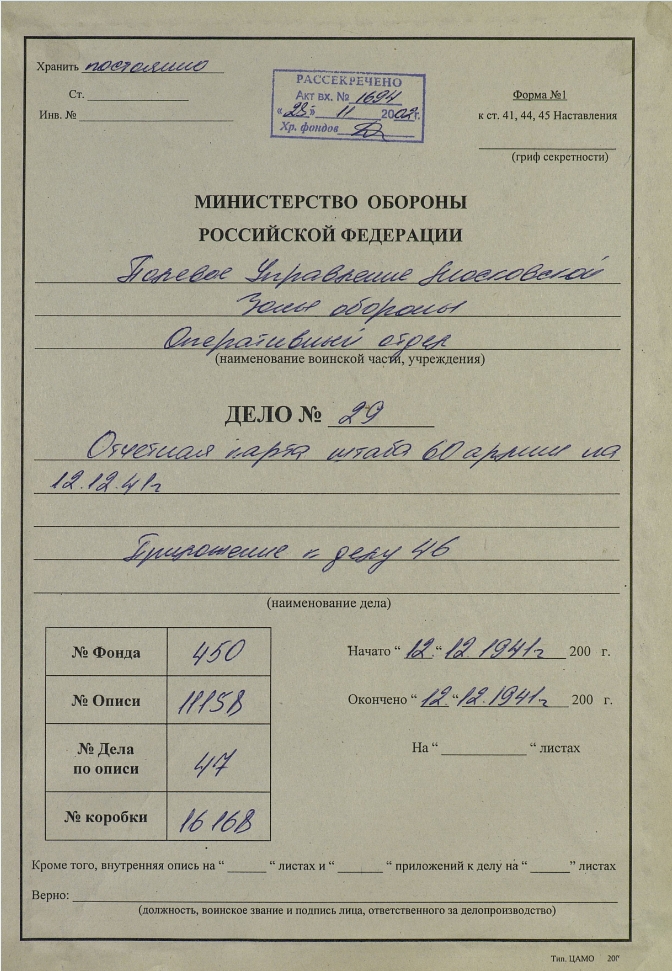 Хранить постоянно
Ст.
Инв. №
РАССЕКРЕЧЕНО
Акт вх. № 1694
«23» 11 2002г.
Хр. фондов
Форма №1
к ст. 41, 44, 45 Наставления
(гриф секретности)
МИНИСТЕРСТВО ОБОРОНЫ
РОССИЙСКОЙ ФЕДЕРАЦИИ
Полевое Управление Московской
Зоны обороны
Оперативный отдел
(наименование воинской части, учреждения)
ДЕЛО № 29
Отчетная карта штаба 60 армии на
12.12.41г
Приложение к делу 46
(наименование дела)
№ Фонда 450
№ Описи 11158
№ Дела
по описи 47
№ коробки 16168
Начато “ 12 “ 12.1941г 200 г.
Окончено “ 12 “ 12.1941г 200 г.
На “ “ листах
Кроме того, внутренняя опись на “ “ листах и “ “ приложений к делу на “ ” листах
Верно:
(должность, воинское звание и подпись лица, ответственного за делопроизводство)
Тип. ЦАМО